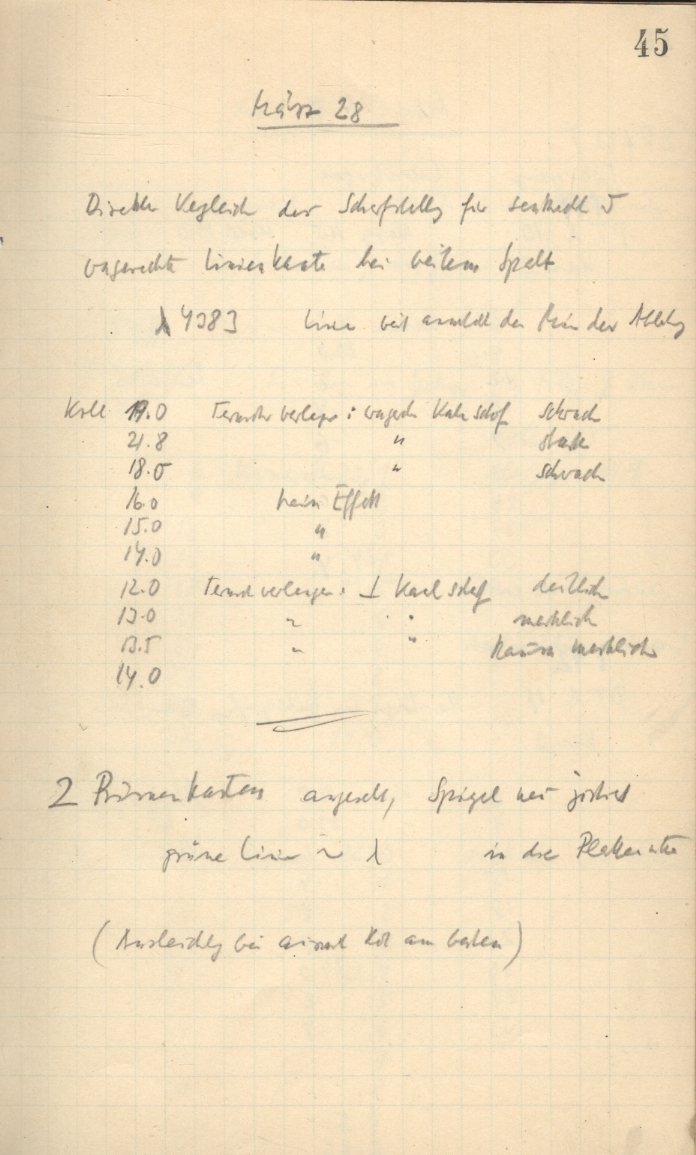 45
März 28
Direkter Vergleich der Scharfstellg für senkrecht u
wagerechte Linienkante bei weitem Spalt
λ 4383 Linie weit ausserhalb der
Koll 19.0 Fernrohr verlängr : wagrch Kante scharf schwach
21.8 " stark
18.0 " schwach
16.0 kein Effekt
15.0 "
14.0 "
12.0 Fernroh verlängern : ⊥ Kante scharf deutlich
13.0 " " merklich
13.5 " " kaum merklich
14.0
2 Prismenkasten angesetzt, Spiegel neu justiert
grüne Linie λ in der Plattenmitte
( bei Rot am besten )